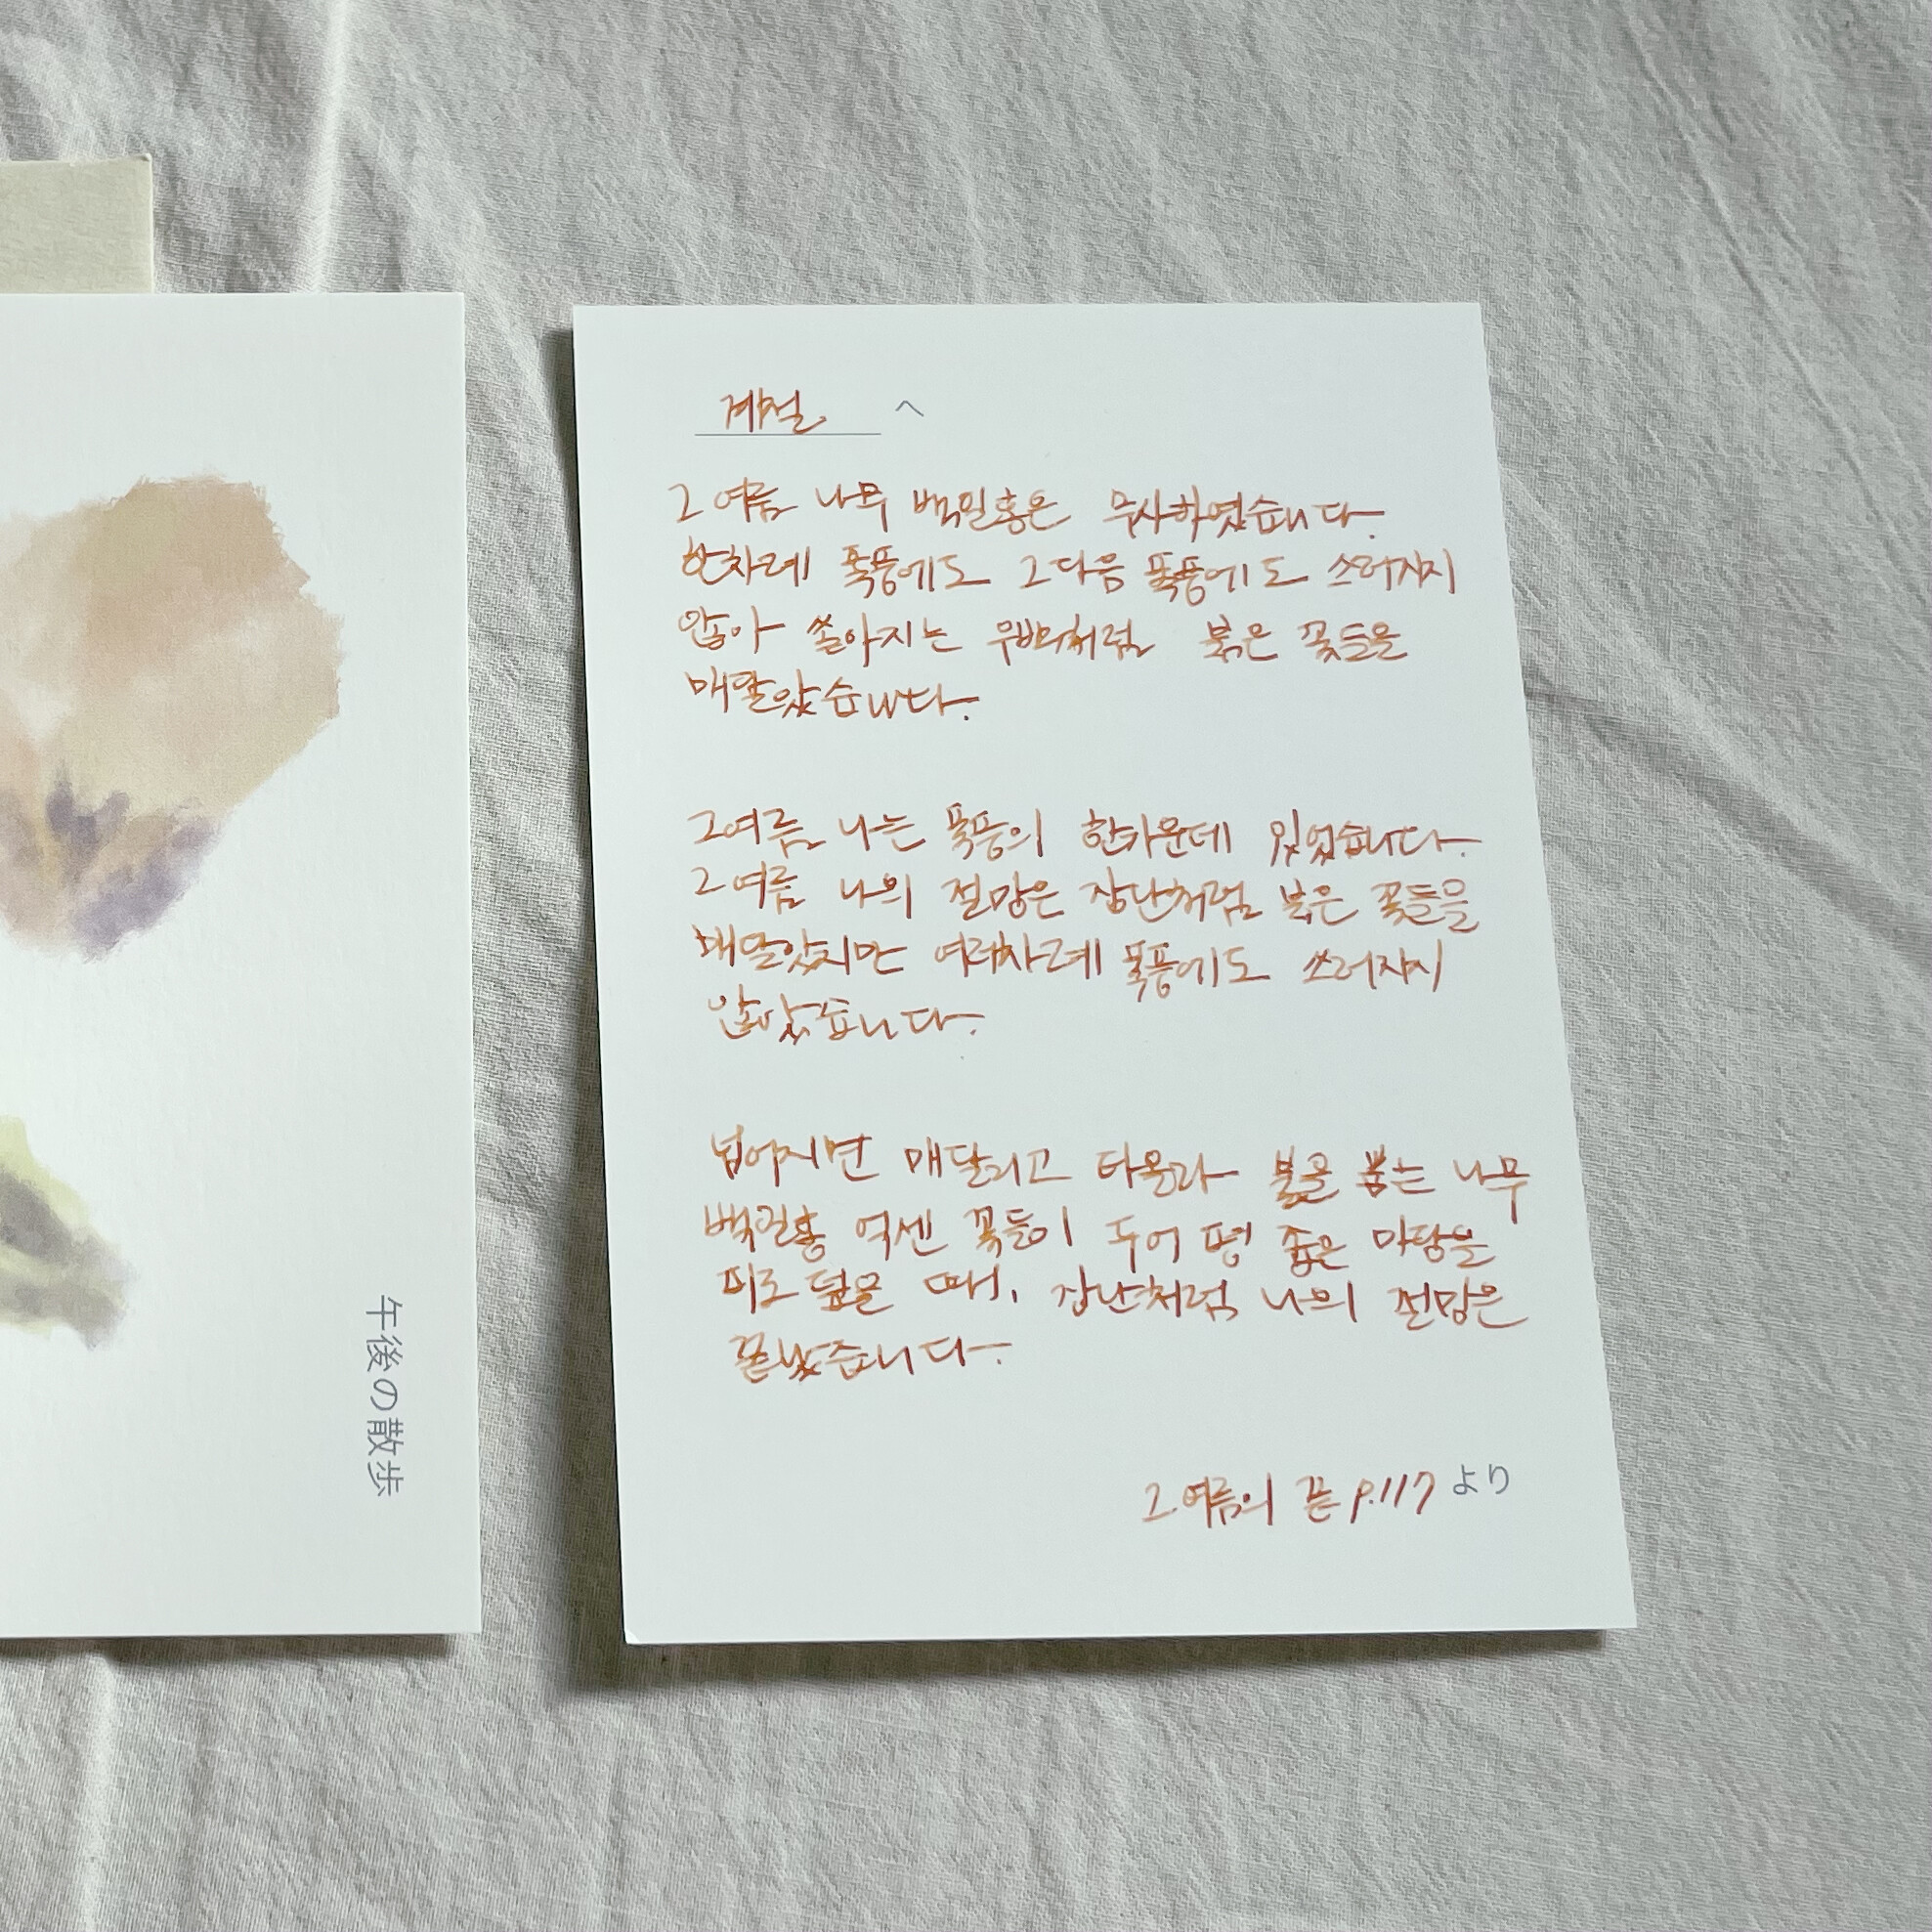 계절 へ
그 여름 나무 백일홍은 무사하였습니다.
한차례 폭풍에도 그 다음 폭풍에도 쓰러지지
않아 쏟아지는 우박처럼 붉은 꽃들을
매달았습니다.
그 여름 나는 폭풍의 한가운데 있었습니다.
그 여름 나의 절망은 장난처럼 붉은 꽃들을
매달았지만 여러차례 폭풍에도 쓰러지지
않았습니다.
넘어지면 매달리고 타올라 불을 뿜는 나무
백일홍 억센 꽃들이 두어 평 좁은 마당을
피로 덮을 때, 장난처럼 나의 절망은
끝났습니다.
그 여름의 끝 p.117 より
午後の散歩